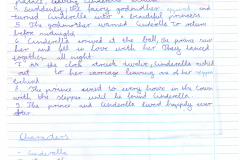 palace leaving Cinderella alone.
4. Suddenly, its fairy godmother appeared and
turned Cinderella into a beautiful princess.
5. The godmother warned Cinderella to return
before midnight.
6. Cinderella arrived at the ball, the prince saw
her and fell in love with her. They danced
together all night.
7. As the clock struck twelve, Cinderella rushed
out to her carriage leaving one of her slipper
behind.
8. The prince went to every house in the town
with the slipper until he found Cinderella.
9. The prince and Cinderella lived happily ever
after.
Characters
- Cinderella